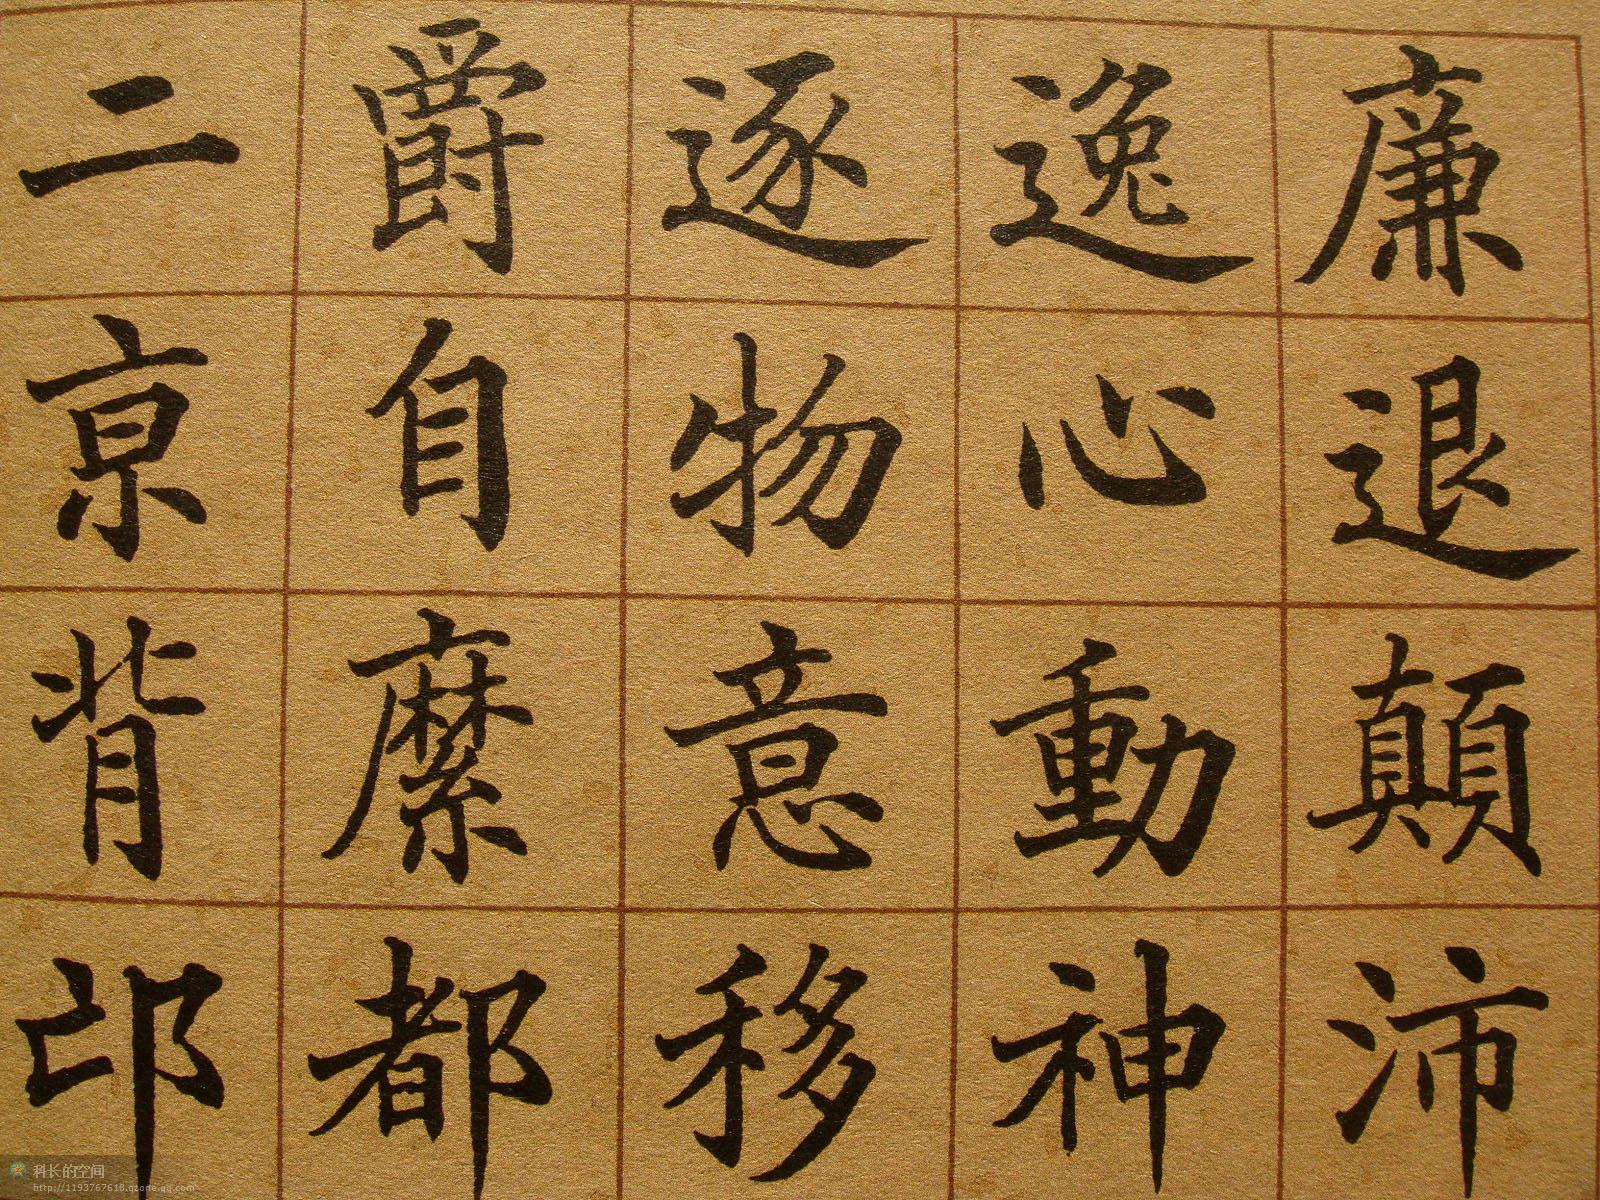 廉退顛沛
逸心動神
逐物意移
爵自縻都
二京背邙
科长的空间
http://1193767618.qzone.qq.com